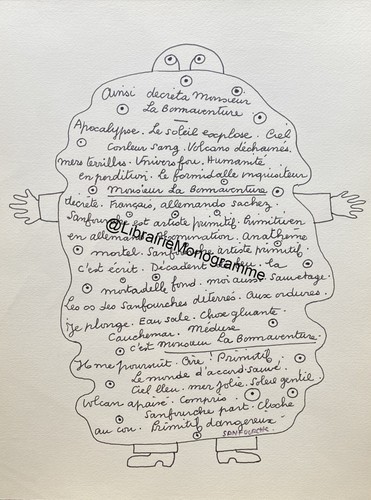 Ainsi décréta Monsieur
La Bonnaventure
Apocalypse. Le soleil explose. Ciel
Couleur sang. Volcans déchainés.
mers terribles. Univers fou. Humanité
en perdition. le formidable inquisiteur
Monsieur La Bonnaventure
décrète. Français, allemands sachez.
Sanfourche est artiste primitif. Primitiven
en allemand. Abomination. Anathème
mortel. Sanfourche artiste primitif.
c'est écrit. Décadent. la
mortadelle fond. moi aussi. Sauvetage.
Les os des Sanfourches déterrés. Aux ordures.
je plonge. Eau sale. Chose gluante.
Cauchemar. Méduse
C'est monsieur La Bonnaventure.
Il me poursuit. Ore! Primitif.
Le monde d'accord. Sauvé.
Ciel bleu. mer jolie. Soleil gentil.
Volcan apaisé. Compris.
Sanfourche part. Cloche
au cou. Primitif dangereux
SANFOURCHE.
@LibrairieMonogramme